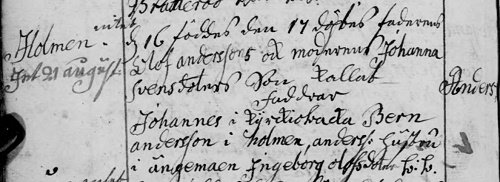 Holmen
Int. 21 august.
d 16 föddes den 17 döptes faderens
Olof anderssons ock moderens Johanna
Svensdoters Son kallat
Anders
Faddrar
Johannes i Kyrkiobacka Bern
andersson i holmen, anders: hustru
i ängemaen Ingeborg olofsdoter h. h.